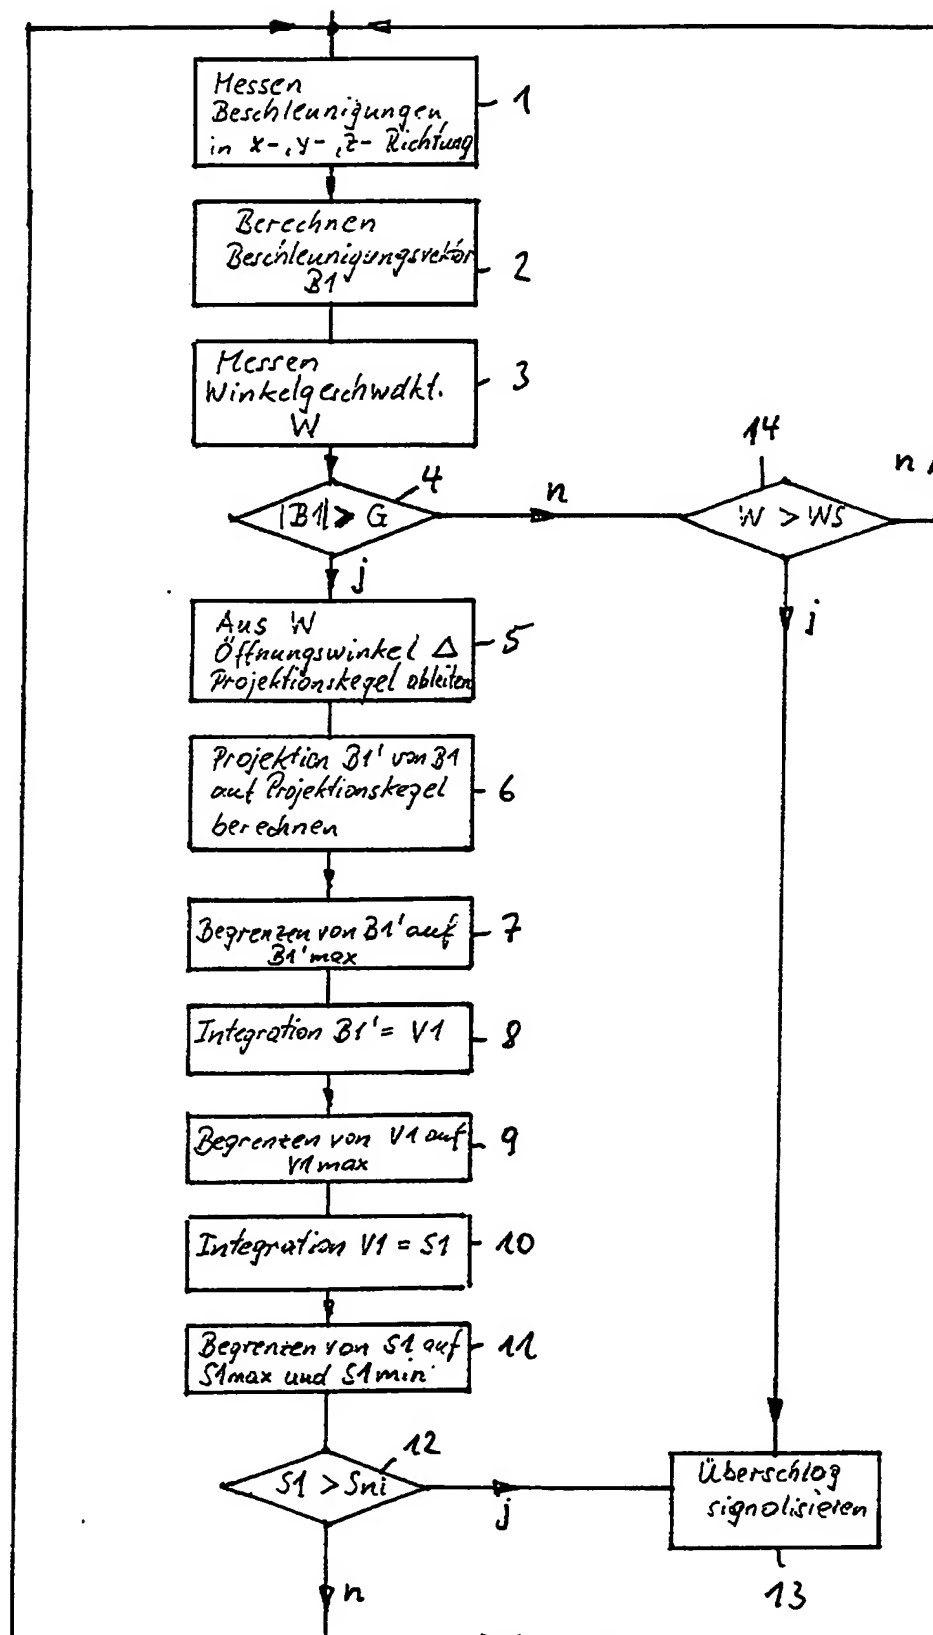 Messen
Beschleunigungen
in x-, y-, z- Richtung
1
Berechnen
Beschleunigungsvektor
B1
2
Messen
Winkelgeschwdkt.
W
3
|B1| > G
4
n
j
W > WS
14
n
j
Aus W
Öffnungswinkel Δ
Projektionskegel ableiten
5
Projektion B1' von B1
auf Projektionskegel
berechnen
6
Begrenzen von B1' auf
B1'max
7
Integration B1' = V1
8
Begrenzen von V1 auf
V1max
9
Integration V1 = S1
10
Begrenzen von S1 auf
S1max und S1min
11
S1 > Sni
12
j
n
Überschlag
signalisieren
13